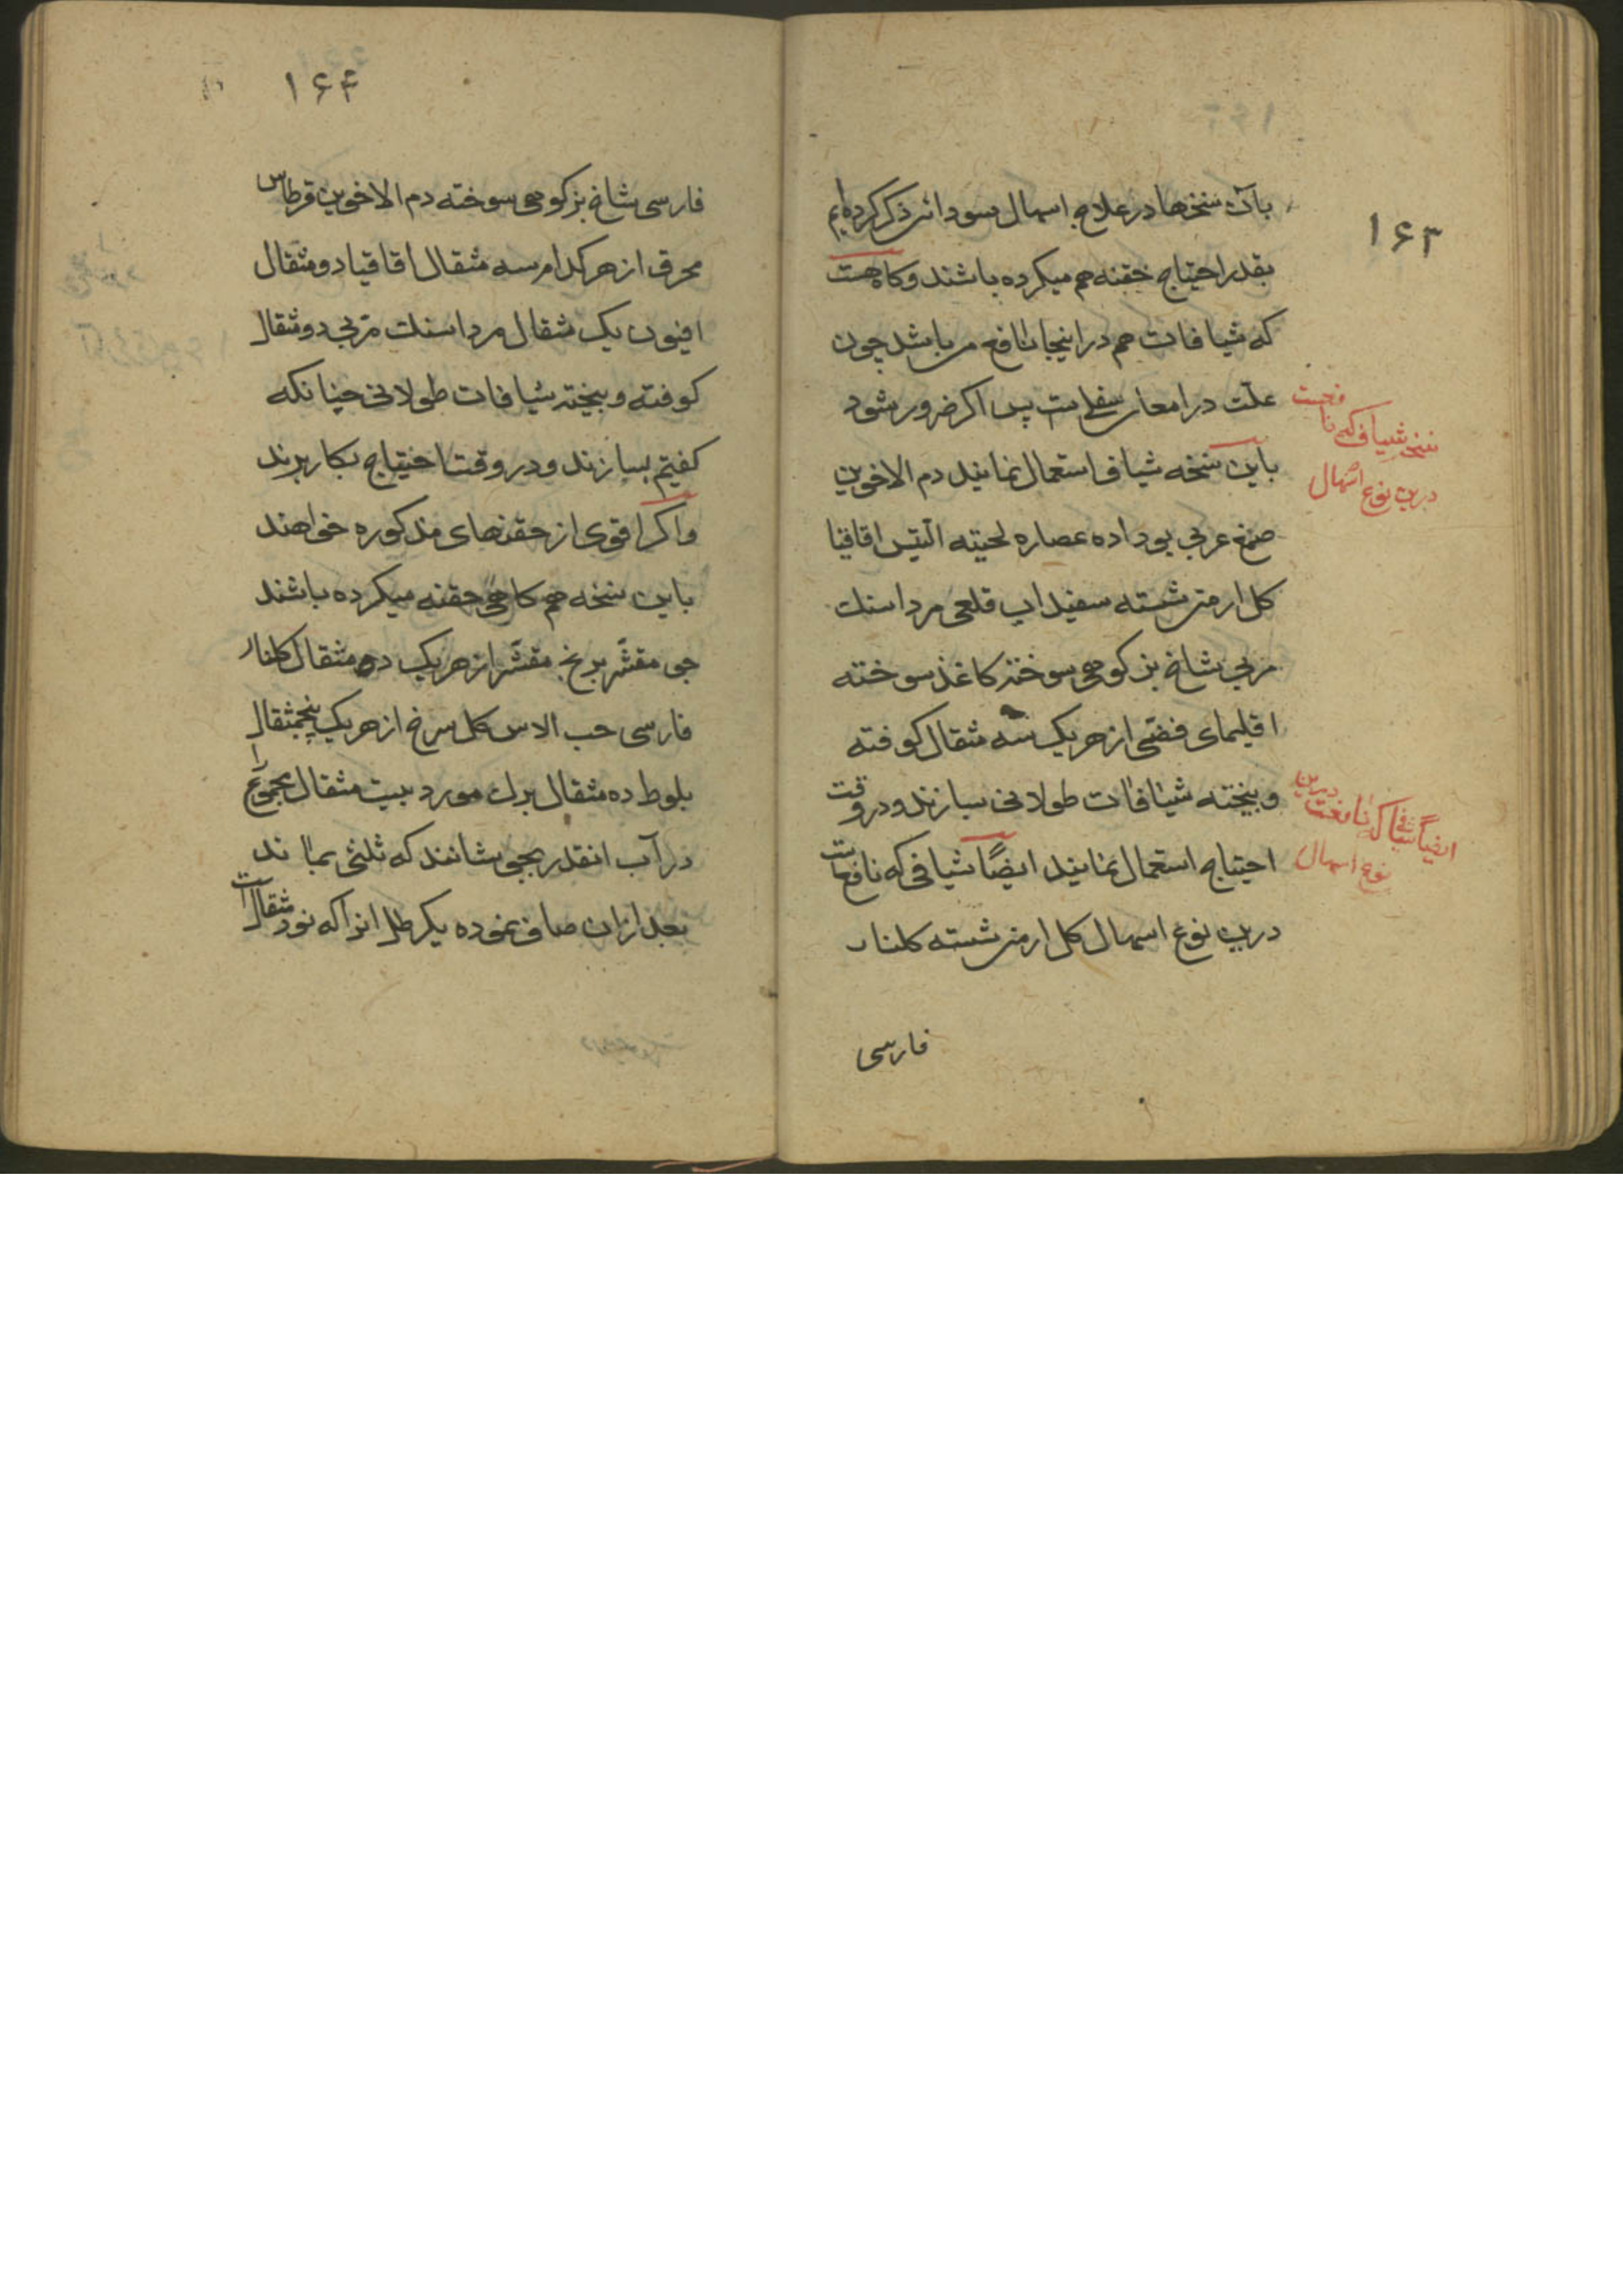 ۱۶۳
بآن نسخها در علاج اسهال سودائی ذکر کرده‌ایم
بقدر احتیاج حقنه هم میکرده باشند و کاه هست
که شیافات هم در اینجا نافع می باشد چون
علّت در امعای سفلی است پس اکر ضرور شود
باین نسخه شیاف استعمال نمایند دم الاخوین
صمغ عربی بو داده عصاره لحیته التیس اقاقیا
کل ارمنی شسته سفیداب قلعی مرداسنک
مربی شاخ بز کوهی سوخته کاغذ سوخته
اقلیمای فضّی از هر یک سه مثقال کوفته
و بیخته شیافات طولانی بسازند و در وقت
احتیاج استعمال نمایند ایضاً شیافی که نافع است
درین نوع اسهال کل ارمنی شسته کلنار
فارسی
نسخه شیاف که نافعست
درین نوع اسهال
ایضاً شیافی که نافعست درین
نوع اسهال
۱۶۴
فارسی شاخ بز کوهی سوخته دم الاخوین قرطاس
محرق از هر کدام سه مثقال اقاقیا دو مثقال
افیون یک مثقال مرداسنک مربی دو مثقال
کوفته و بیخته شیافات طولانی چنانکه
کفتیم بسازند و در وقت احتیاج بکار برند
و اکر اقوی از حقنهای مذکوره خواهند
باین نسخه هم کاهی حقنه میکرده باشند
جو مقشّر برنج مقشّر از هر یک ده مثقال کلنار
فارسی حب الاس کل سرخ از هر یک پنجمثقال
بلوط ده مثقال برک مورد بیست مثقال مجموع را
در آب انقدر بجوشانند که ثلثی بماند
بعد از ان صاف نموده یکرطل انرا که نود مثقال است